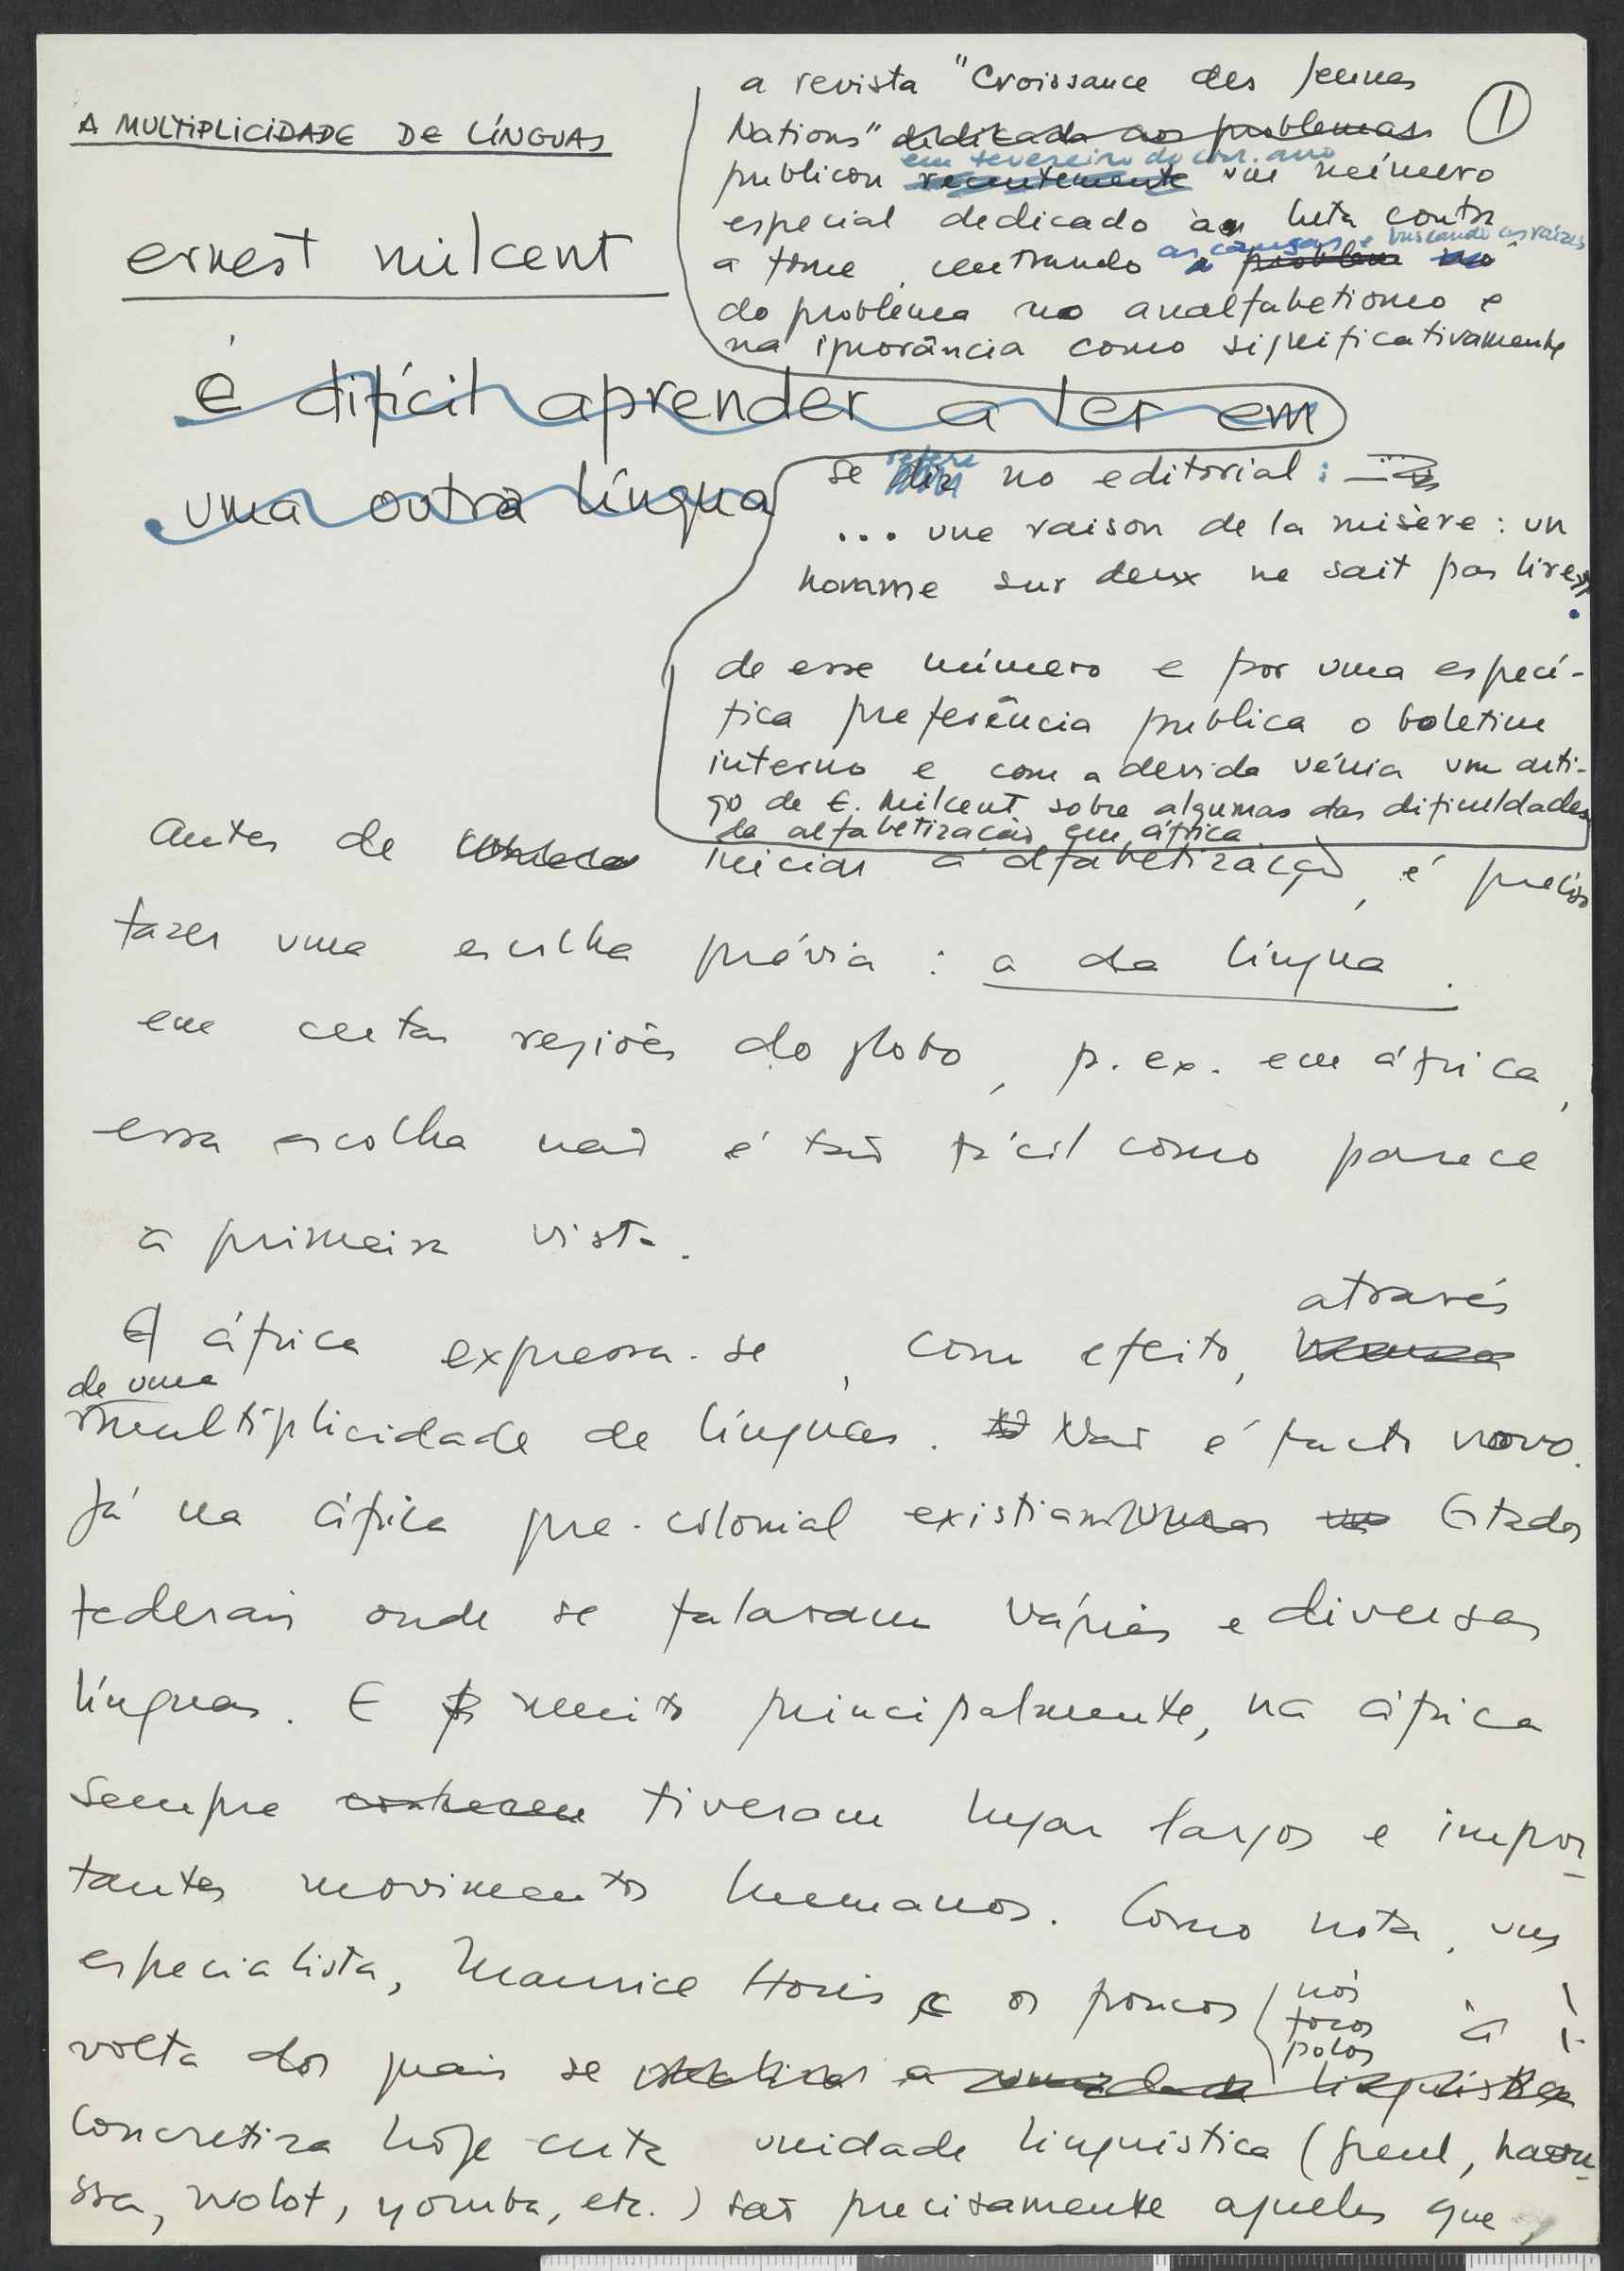 A MULTIPLICIDADE DE LÍNGUAS
ernest milcent
é difícil aprender a ler em
uma outra língua
①
a revista "Croissance des Jeunes
Nations" dedicada aos problemas
em fevereiro do corr. ano
publicou recentemente um número
especial dedicado à luta contra
as causas e buscando as raízes
a fome, centrando o problema no
do problema no analfabetismo e
na ignorância como significativamente
refere
se diz no editorial :
... une raison de la misère : un
homme sur deux ne sait pas lire.
de esse número e por uma especí-
fica preferência publica o boletim
interno e com a devida vénia um arti-
go de E. Milcent sobre algumas das dificuldades
da alfabetização em áfrica
Antes de iniciar a alfabetização, é preciso
fazer uma escolha prévia : a da língua.
em certas regiões do globo, p. ex. em áfrica,
essa escolha não é tão fácil como parece
à primeira vista.
através
A áfrica expressa-se, com efeito,
de uma
multiplicidade de línguas. Não é facto novo.
Já na áfrica pre-colonial existiam Estados
federais onde se falavam várias e diversas
línguas. E muito principalmente, na áfrica
sempre conheceu tiveram lugar largos e impor-
tantes movimentos humanos. Como nota, um
especialista, Maurice Houis, os poucos
nós
focos
polos
à
volta dos quais se a unidade linguistica
concretiza hoje certa unidade linguistica (peul, haou-
ssa, wolof, yoruba, etc.) são precisamente aqueles que,